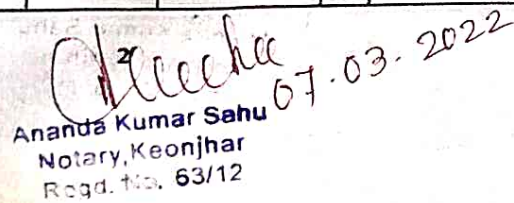 07.03.2022
Ananda Kumar Sahu
Notary, Keonjhar
Regd. No. 63/12